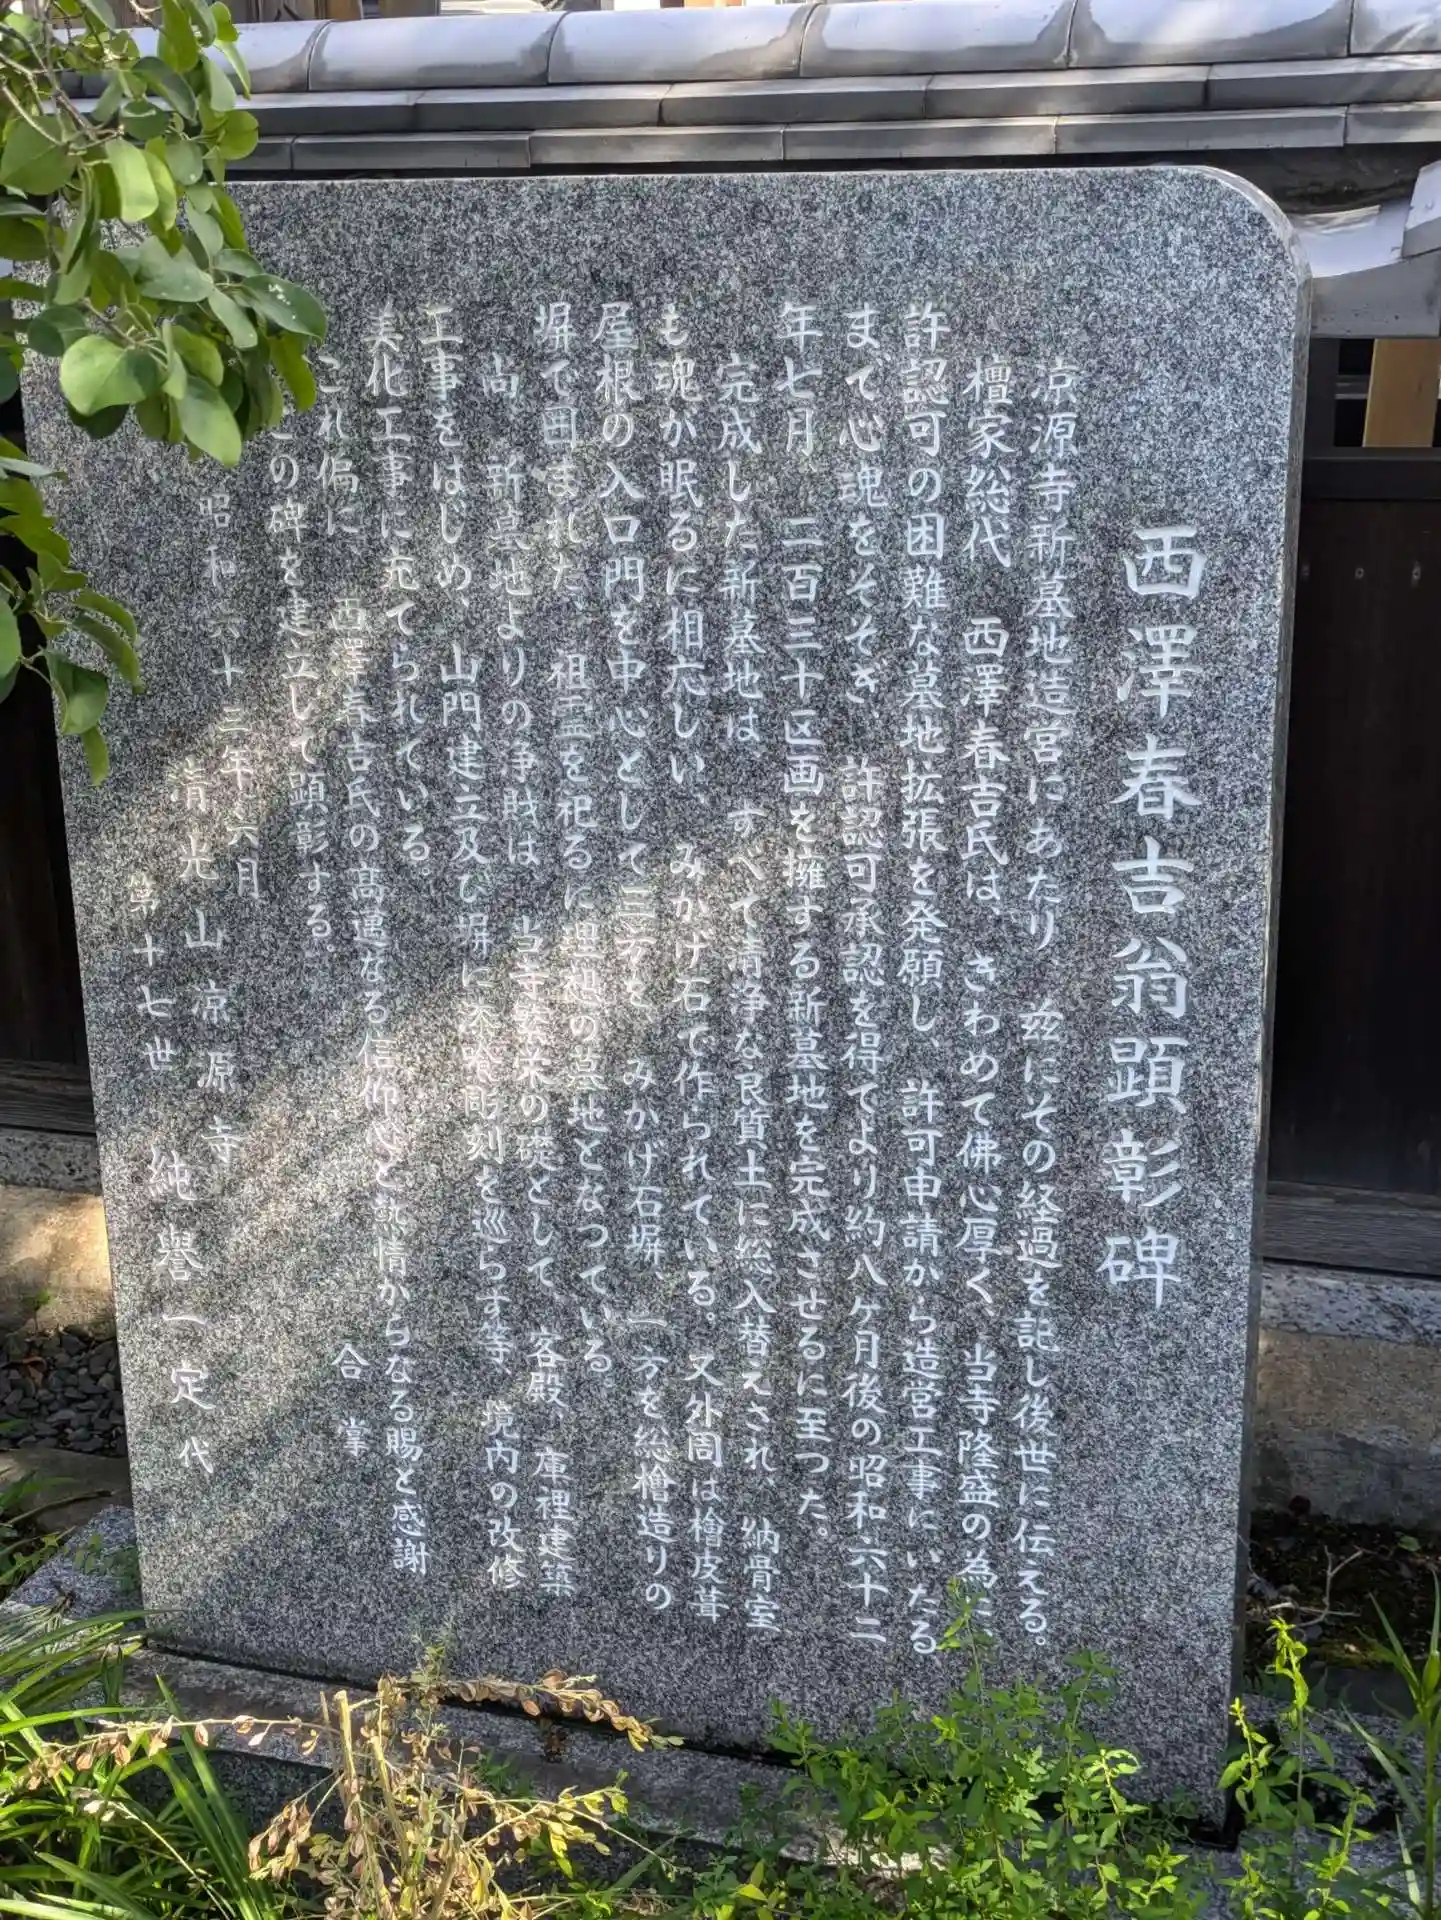 西澤春吉翁顕彰碑
凉源寺新墓地造営にあたり、玆にその経過を託し後世に伝える。
檀家総代 西澤春吉氏は、きわめて佛心厚く、当寺隆盛の為に、
許認可の困難な墓地拡張を発願し、許可申請から造営工事にいたる
まで心魂をそそぎ、許認可承認を得てより約八ヶ月後の昭和六十二
年七月 二百三十区画を擁する新墓地を完成させるに至つた。
完成した新墓地は、すべて清浄な良質土に総入替えされ、納骨室
も魂が眠るに相応しい、みかげ石で作られている。又外周は檜皮葺
屋根の入口門を中心として三方を みかげ石塀、一方を総檜造りの
塀で囲まれた、祖霊を祀るに理想の墓地となつている。
尚、新墓地よりの浄財は 当寺繁栄の礎として、客殿、庫裡建築
工事をはじめ、山門建立及び塀に漆喰彫刻を巡らす等、境内の改修
美化工事に充てられている。
これ偏に、西澤春吉氏の高邁なる信仰心と熱情からなる賜と感謝
この碑を建立して顕彰する。
合掌
昭和六十三年六月
清光山凉源寺
第十七世 純誉一定代